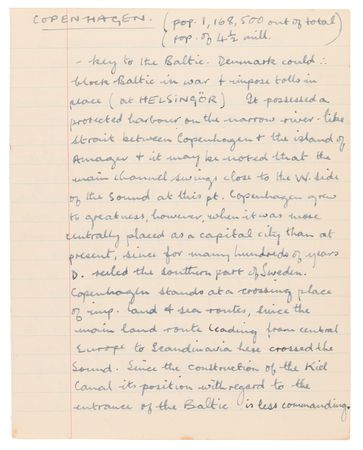 COPENHAGEN. (pop. 1,168,500 out of total)
(pop. of 4½ mill.
- key to the Baltic. Denmark could ∴
block Baltic in war & impose tolls in
peace (at HELSINGÖR) It possessed a
protected harbour on the narrow river-like
strait between Copenhagen & the island of
Amager & it may be noted that the
main channel swings close to the W. side
of the Sound at this pt. Copenhagen grew
to greatness, however, when it was more
centrally placed as a capital city than at
present, since for many hundreds of years
D. ruled the southern part of Sweden.
Copenhagen stands at a crossing place
of imp. land & sea routes, since the
main land route leading from central
Europe to Scandinavia here crossed the
Sound. Since the construction of the Kiel
Canal its position with regard to the
entrance of the Baltic is less commanding.